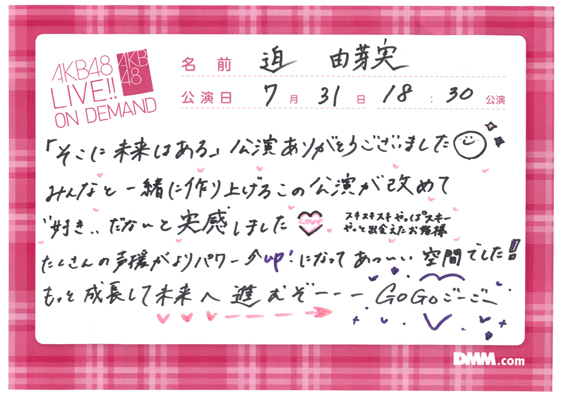 AKB48
LIVE!!
ON DEMAND
AKB
48
名前 迫 由芽実
公演日 7月31日 18:30 公演
「そこに未来はある」公演ありがとうございました
みんなと一緒に作り上げるこの公演が改めて
"好き"だなぁと実感しました LOVE
スキスキスキ やっぱスキー
やっと出会えたお姫様
たくさんの声援がよりパワーup!になってあっつい空間でした!!
もっと成長して未来へ進むぞーーー GOGOごーごー
DMM.com